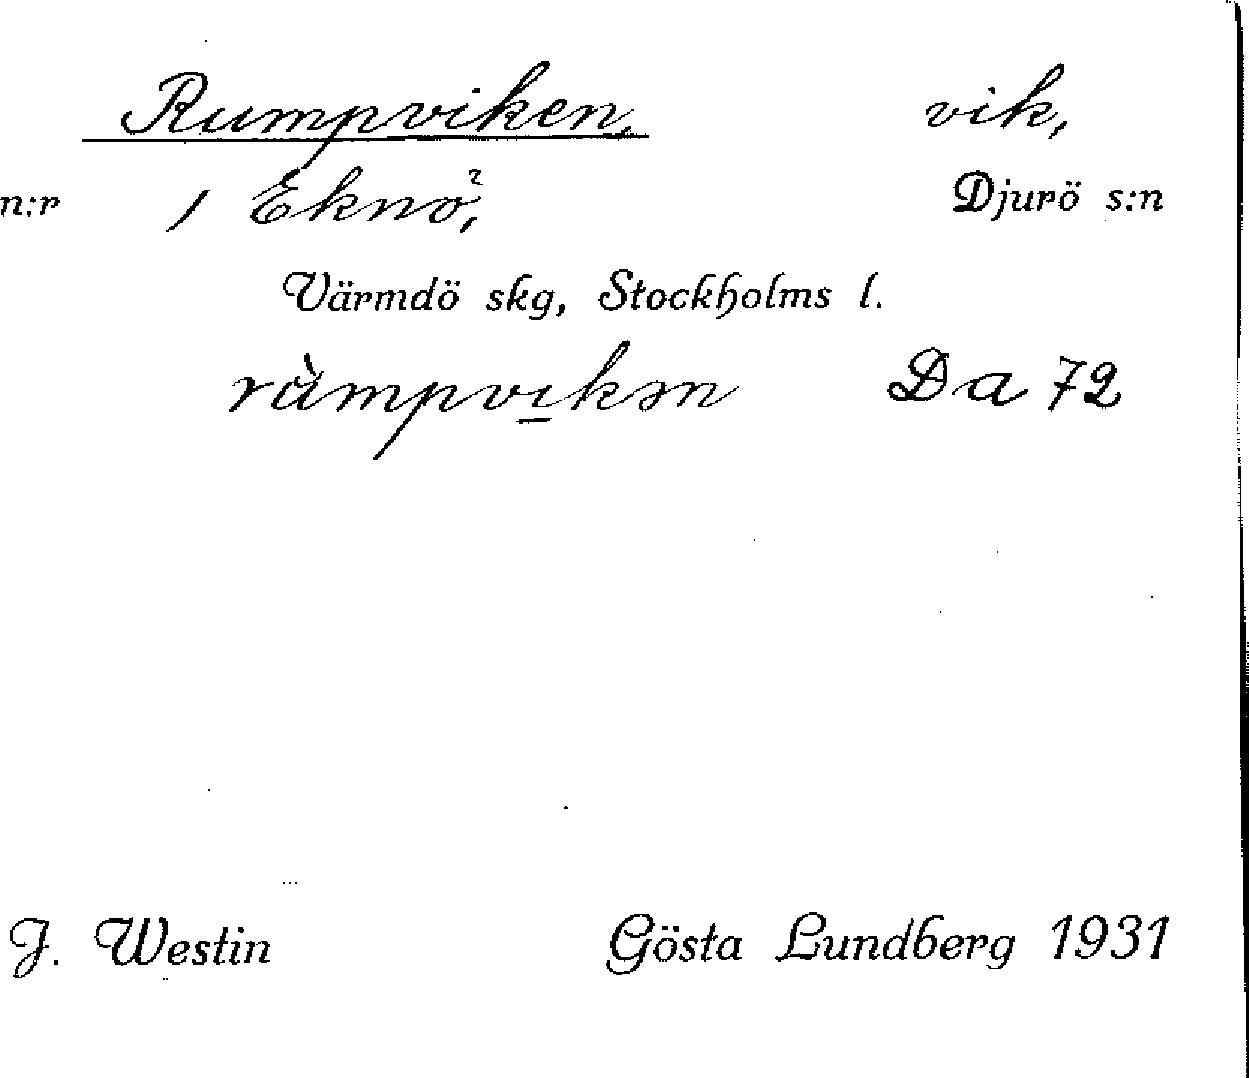 Rumpviken, vik,
n:r 1 Eknö, Djurö s:n
Värmdö skg, Stockholms l.
ràmpvikən Da 72
J. Westin Gösta Lundberg 1931